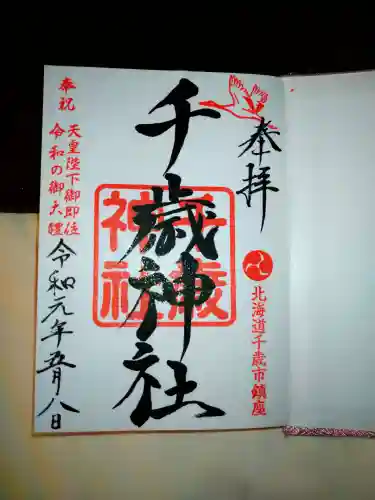 奉拝
北海道千歳市鎮座
千歳神社
千歳神社
奉祝
天皇陛下御即位
令和の御大禮
令和元年五月八日